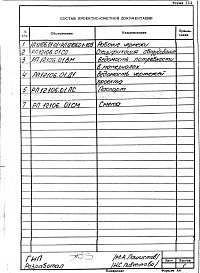 Форма 11.2
СОСТАВ ПРОЕКТНО-СМЕТНОЙ ДОКУМЕНТАЦИИ
№ п/п Обозначение Наименование Примечание
1 Рабочие чертежи
2 РП12106.01СО Спецификация оборудования
3 РП12106.01.ВМ Ведомость потребности
в материалах
4 РП12106.01.Д1 Ведомость чертежей
проекта
5 РП12106.01.ПС Паспорт
7 РП12106.01СМ Смета
ГИП
Разработал
Лист Листов
1
Копировал Формат А4